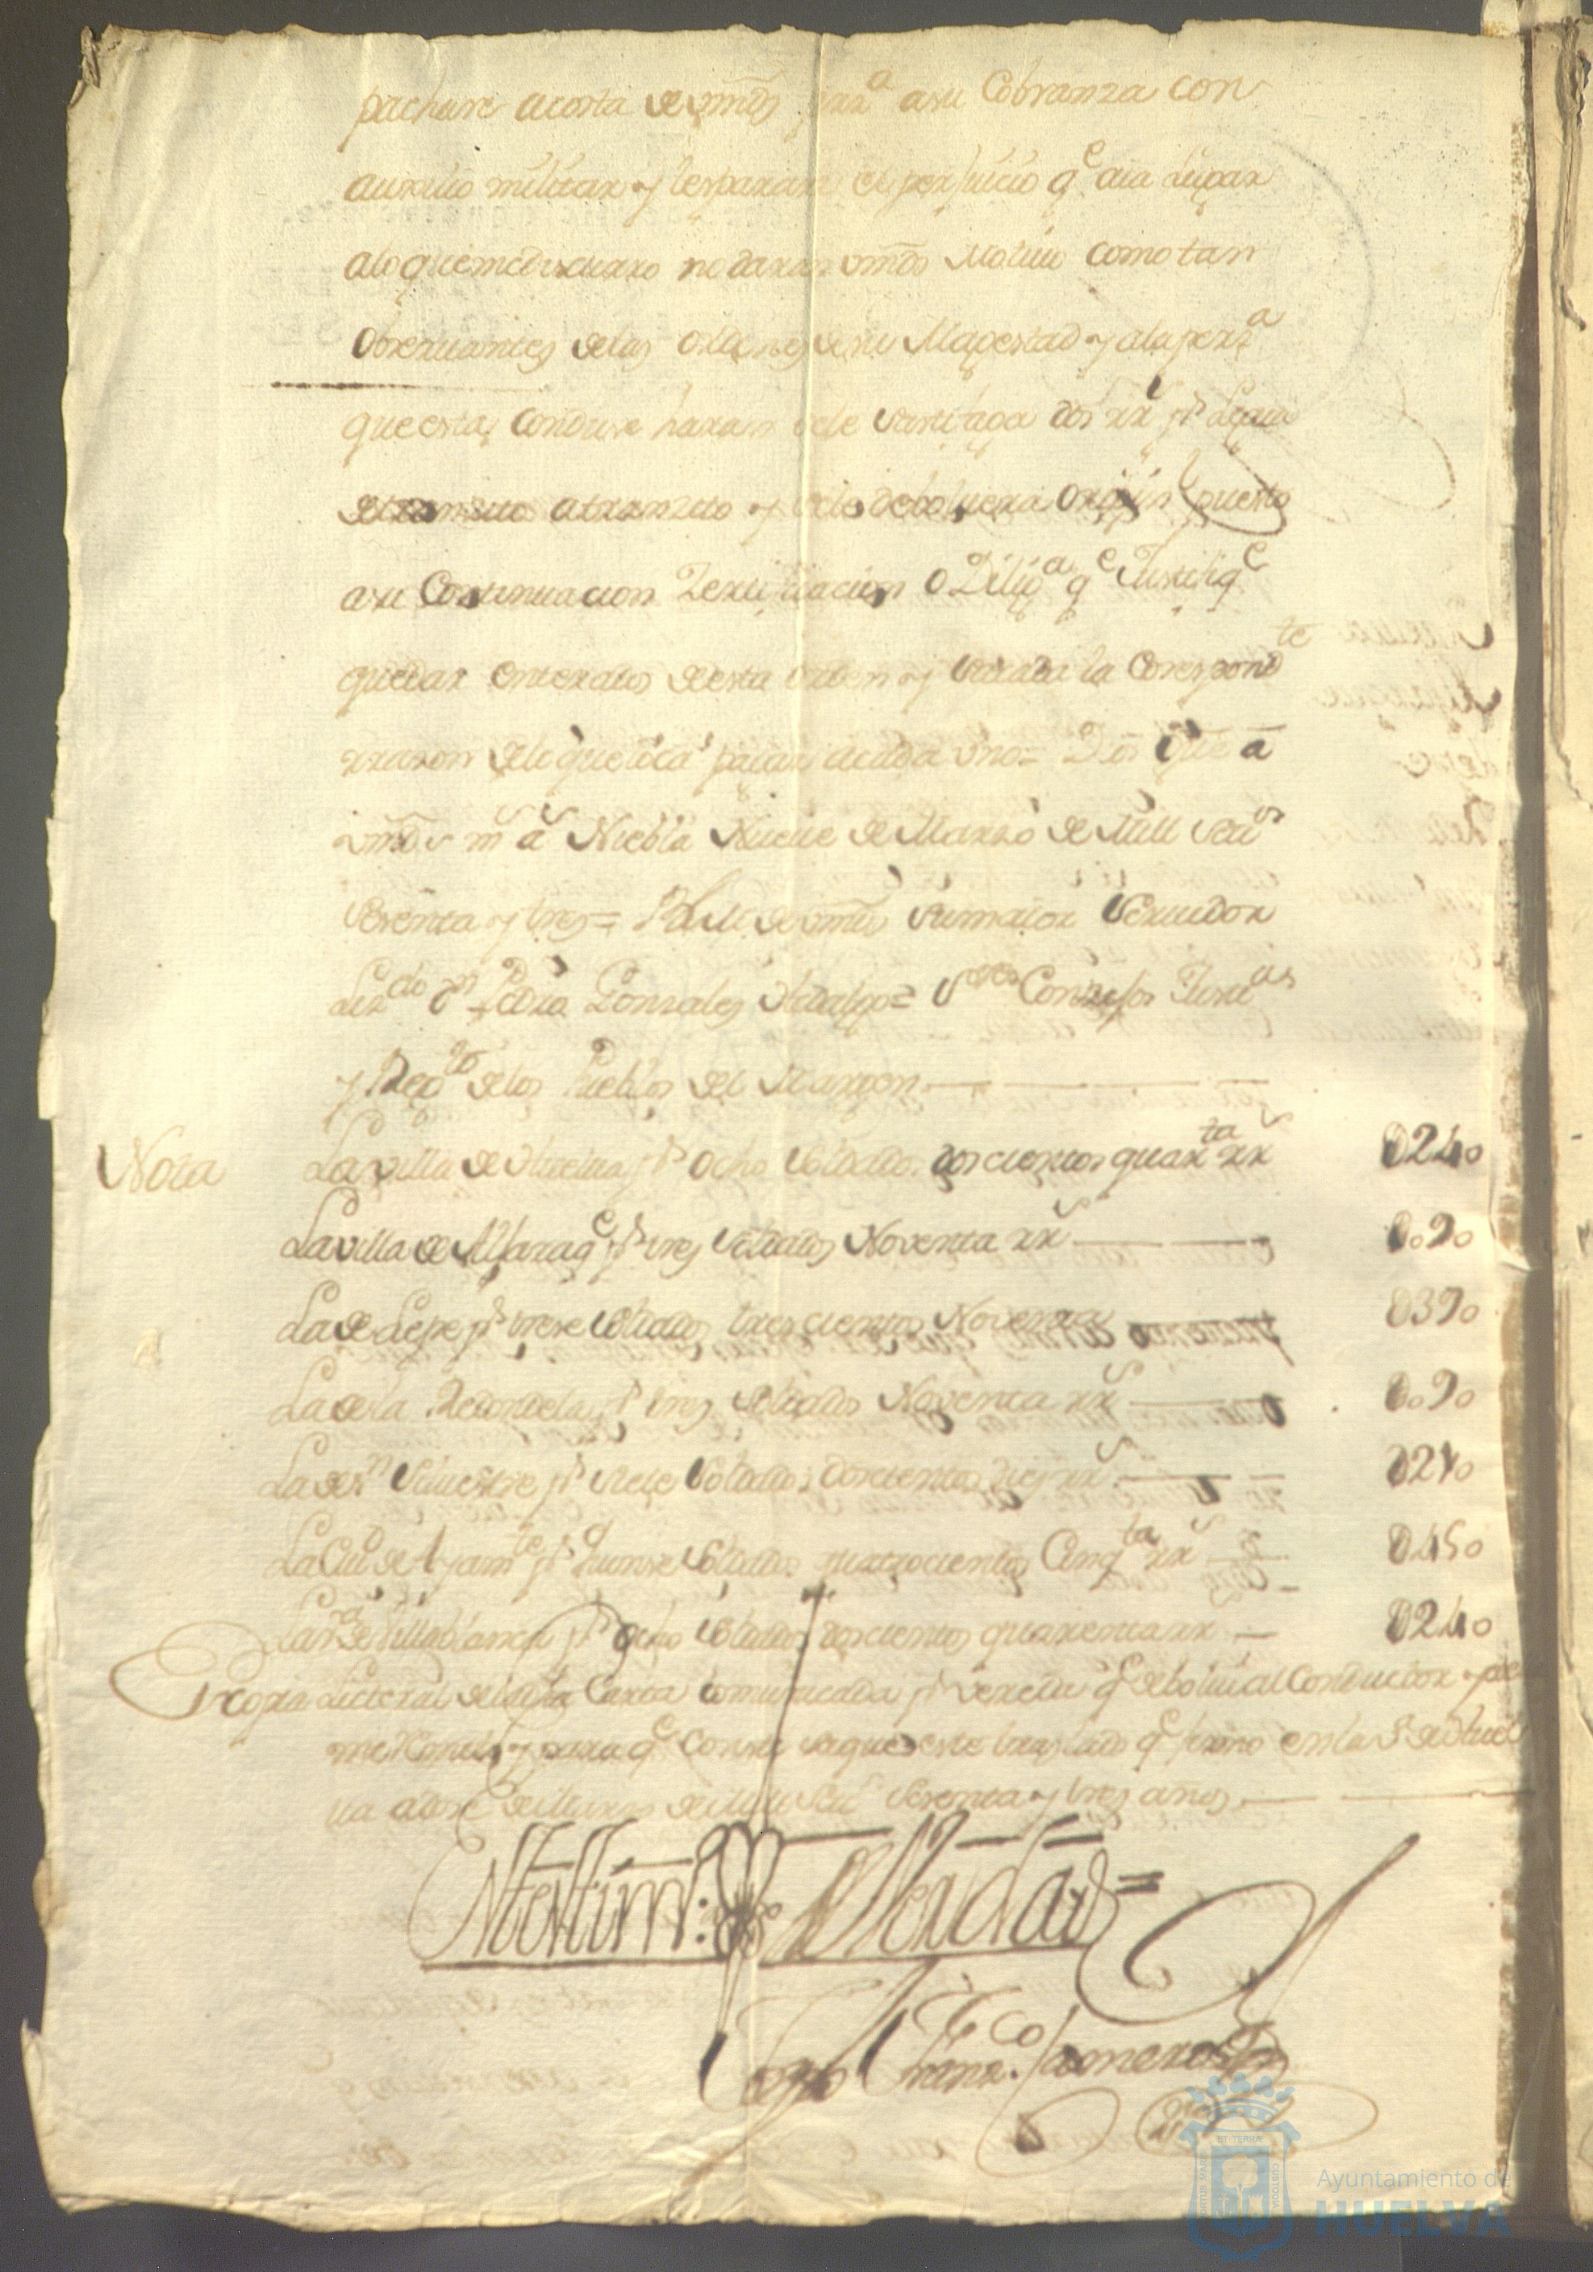 pachare acosta de vmds pers.ª asu Cobranza con
auxilio militar y les parará el perjuicio q.e aia Lugar
alo que mediscurro no daran vmds Motivo como tan
Observantes delas ordenes de su Magestad y ala pers.ª
que esta conduse haran sele satisfaga dos rr.s p.r Legua
de transito atransito y sela debolvera origin.l puesto
asu Continuacion Zertificacion o Dilig.ª q.e Justifiq.e
quedar enterados de esta orden y tomada la Correspond.te
rrazon delo que toca pagar acada vno= Dios gue a
vmds m.s a.s Niebla Nueve de Marzo de Mill set.s
Sesenta y tres= BLM de vmds su maior Servidor
Liz.do d.n Pedro Gonzales Hidalgo= S.res Consejos Just.as
y Rex.to delos Pueblos del Margen
Nota La villa de Huelva p.r ocho soldados doscientos quar.ta rr.s 0240
La villa de Aljaraq.e p.r tres soldados Noventa rr.s 0.90
La de Lepe p.r trese soldados trescientos Noventa 0390
La dela Redondela p.r tres soldados Noventa rr.s 0.90
La de S.n Silvestre p.r siete soldados doscientos diez rr.s 0210
La Ciu.d de Ayam.te p.r quinse soldados quatrocientos Cinq.ta rr.s 0450
La v.ª de Villablanca p.r ocho soldados doscientos quarenta rr. 0240
Es copia Literal dela Carta comunicada p.r Vereda q.e debolvi al Conductor y
me Remito y para q.e conste saque este traslado q.e firmo en la V.ª de Huel
va adose de Marzo de Mill set.s Sesenta y tres años
En testim.º de Verdad=
Franz.co Romero
Ayuntamiento de
HUELVA